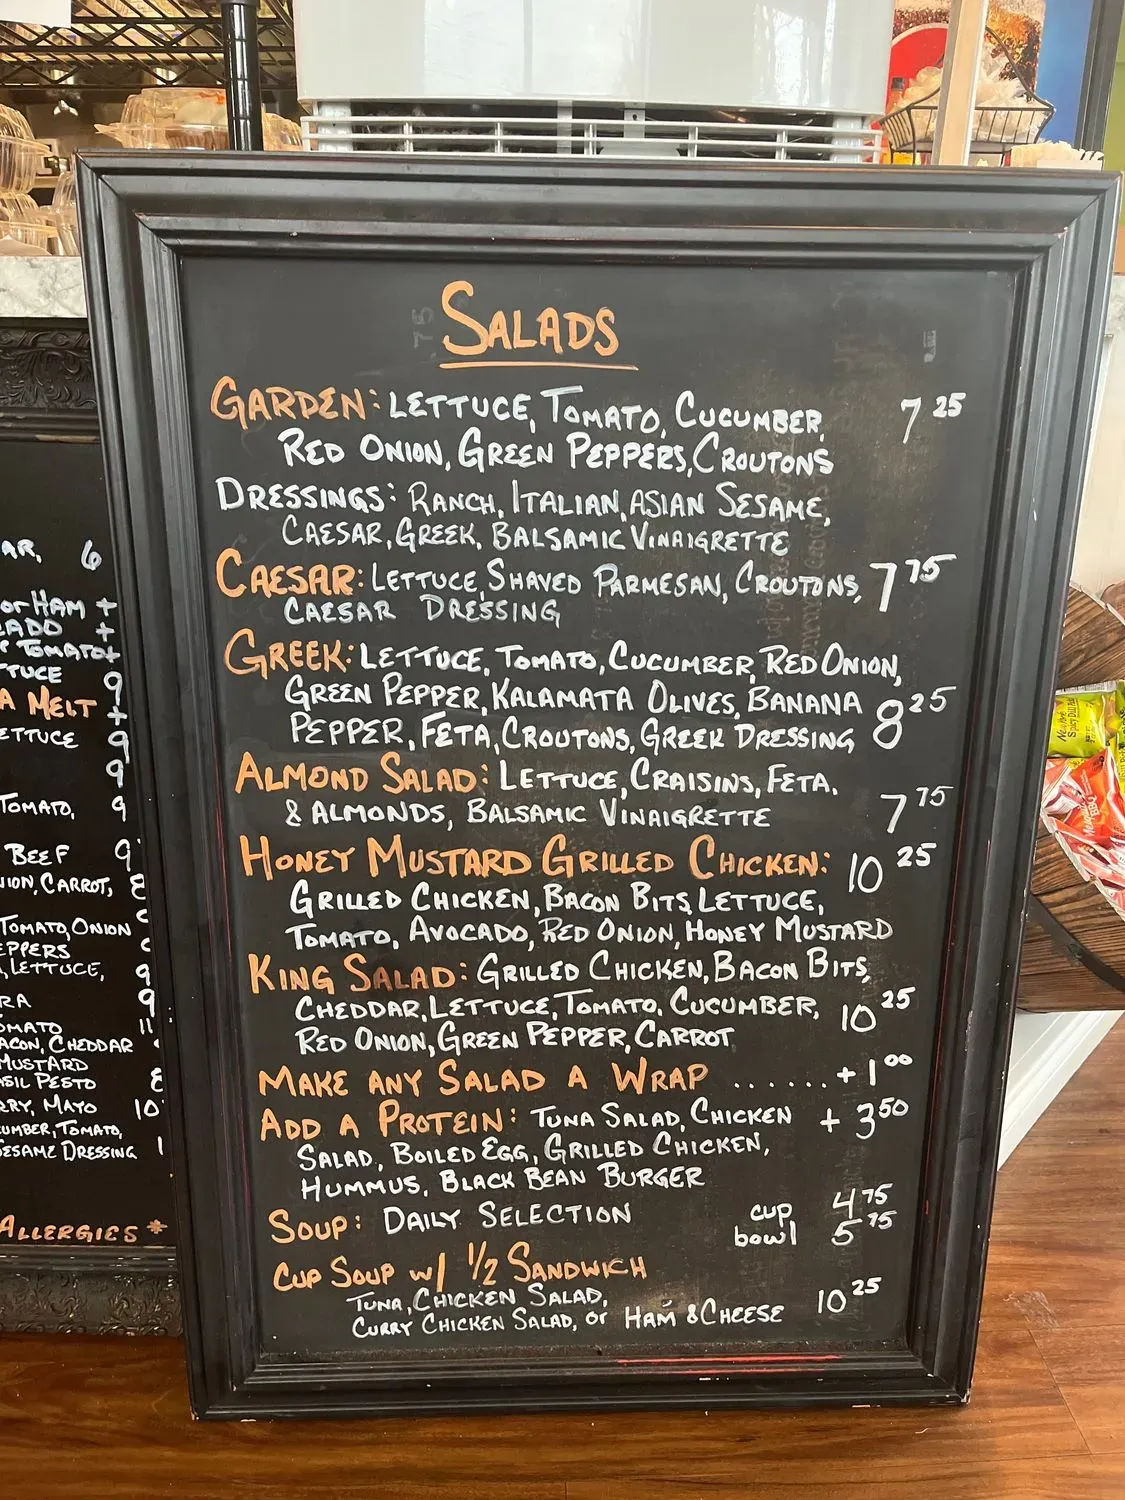 SALADS
GARDEN: LETTUCE, TOMATO, CUCUMBER, 7 25
RED ONION, GREEN PEPPERS, CROUTONS
DRESSINGS: RANCH, ITALIAN, ASIAN SESAME,
CAESAR, GREEK, BALSAMIC VINAIGRETTE
CAESAR: LETTUCE, SHAVED PARMESAN, CROUTONS, 7 75
CAESAR DRESSING
GREEK: LETTUCE, TOMATO, CUCUMBER, RED ONION,
GREEN PEPPER, KALAMATA OLIVES, BANANA
PEPPER, FETA, CROUTONS, GREEK DRESSING 8 25
ALMOND SALAD: LETTUCE, CRAISINS, FETA,
& ALMONDS, BALSAMIC VINAIGRETTE 7 75
HONEY MUSTARD GRILLED CHICKEN: 10 25
GRILLED CHICKEN, BACON BITS, LETTUCE,
TOMATO, AVOCADO, RED ONION, HONEY MUSTARD
KING SALAD: GRILLED CHICKEN, BACON BITS,
CHEDDAR, LETTUCE, TOMATO, CUCUMBER, 10 25
RED ONION, GREEN PEPPER, CARROT
MAKE ANY SALAD A WRAP ...... + 1 00
ADD A PROTEIN: TUNA SALAD, CHICKEN + 3 50
SALAD, BOILED EGG, GRILLED CHICKEN,
HUMMUS, BLACK BEAN BURGER
SOUP: DAILY SELECTION cup 4 75
bowl 5 75
CUP SOUP w/ 1/2 SANDWICH
TUNA, CHICKEN SALAD, 10 25
CURRY CHICKEN SALAD, or HAM & CHEESE
6
or HAM +
+
TOMATO +
9
MELT +
9
9
TOMATO, 9
BEEF 9
CARROT,
TOMATO, ONION
LETTUCE, 9
9
CHEDDAR
MUSTARD
PESTO
MAYO 10
TOMATO,
DRESSING
ALLERGIES *